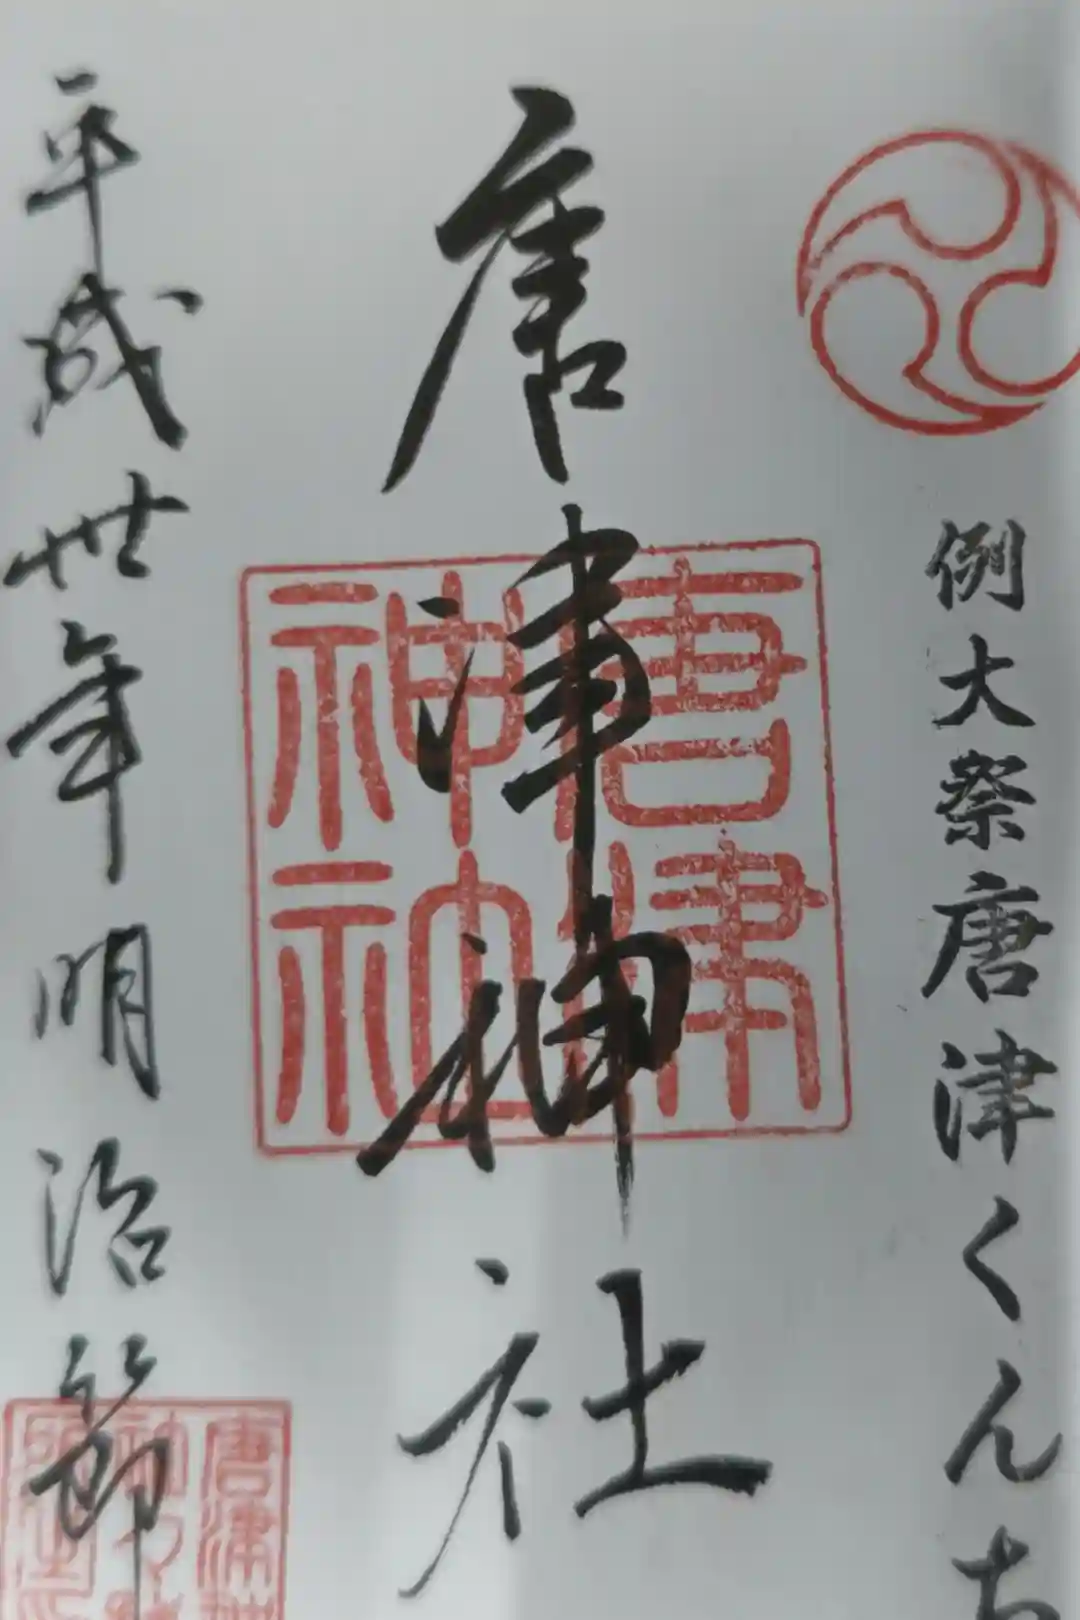 例大祭唐津くんち
唐津神社
唐津神社
平成卅年明治節
唐津神